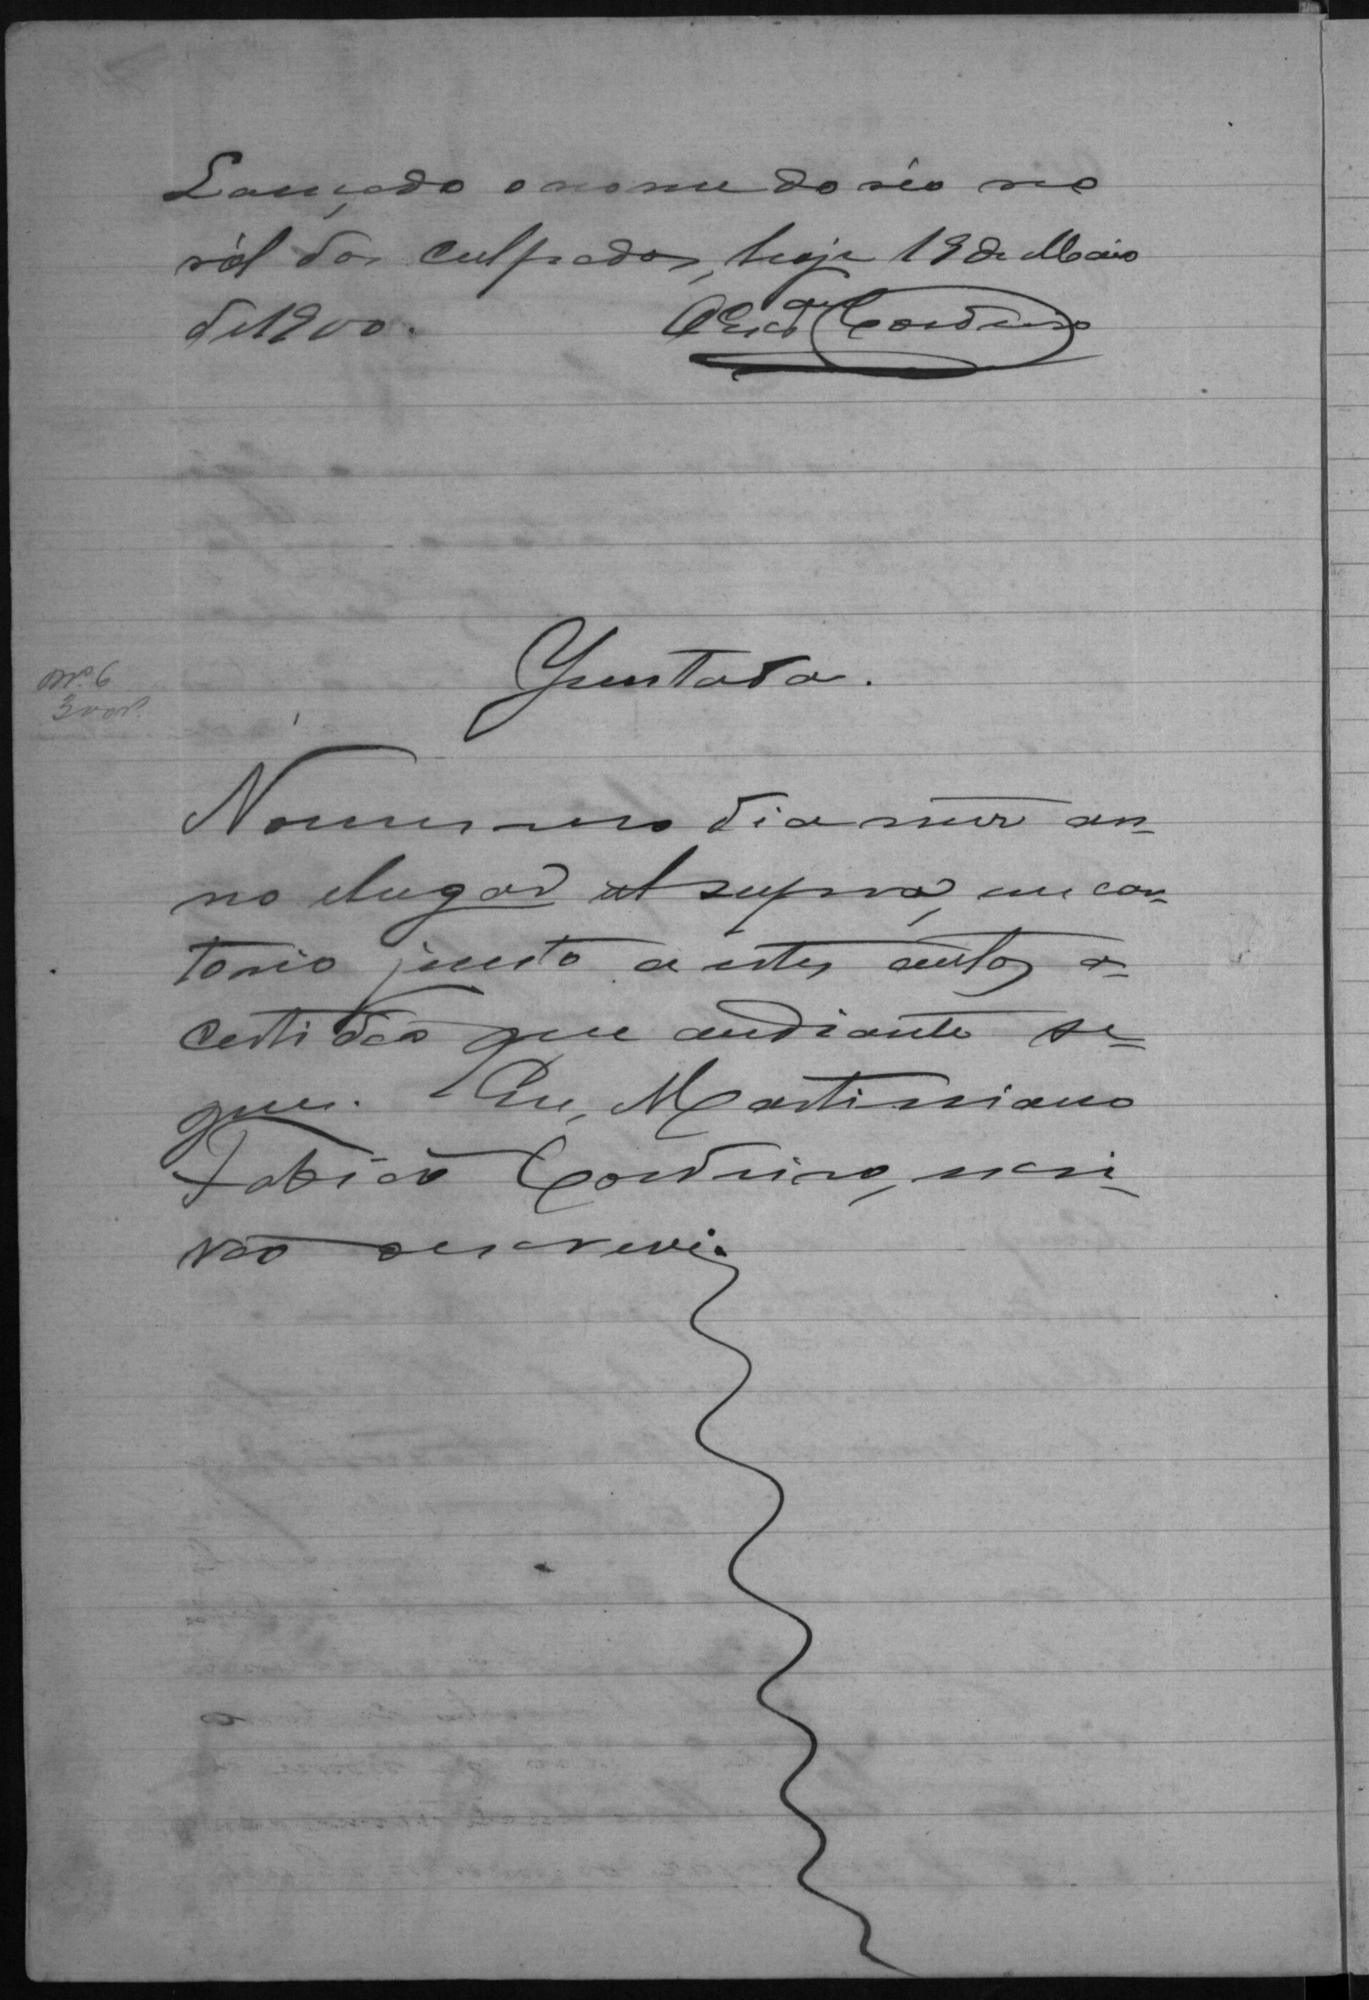 Lançado o nome do réo no
ról dos culpados, hoje 19 de Maio
de 1900. O Escr.am Cordeiro
Nº 6
300 rs.
Juntada.
No mesmo dia mez an-
no e lugar ut supra, em car-
torio junto a estes autos a
certidão que andiante se-
gue. Eu, Martiniano
Fabião Cordeiro, escri-
vão o escrevi.